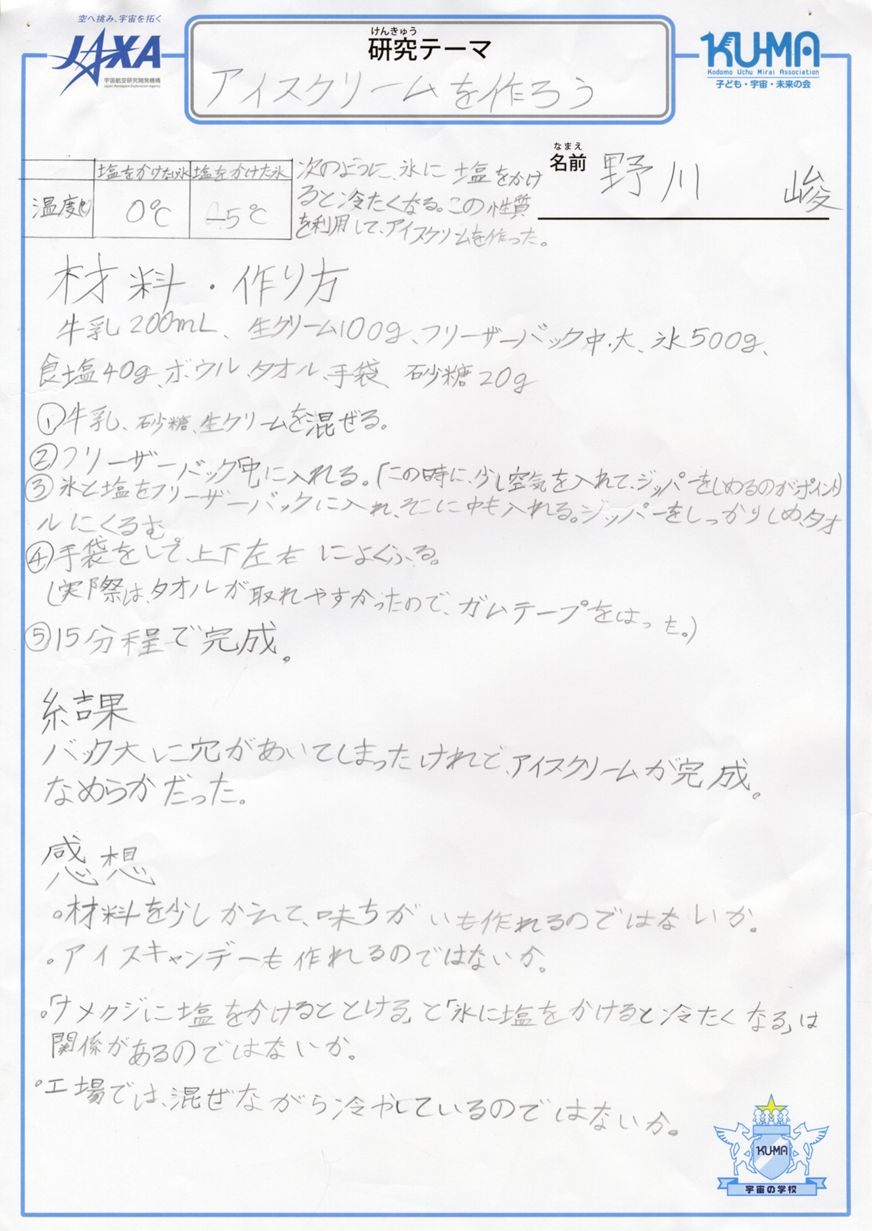 空へ挑み、宇宙を拓く
JAXA
宇宙航空研究開発機構
Japan Aerospace Exploration Agency
けんきゅう
研究テーマ
アイスクリームを作ろう
KU-MA
Kodomo Uchu Mirai Association
子ども・宇宙・未来の会
なまえ
名前 野川 峻
塩をかけない氷 塩をかけた氷
温度(℃) 0℃ -5℃
次のように、氷に塩をかけ
ると冷たくなる。この性質
を利用して、アイスクリームを作った。
材料・作り方
牛乳200mL、生クリーム100g、フリーザーバック中・大、氷500g、
食塩40g、ボウル、タオル、手袋、砂糖20g
①牛乳、砂糖、生クリームを混ぜる。
②フリーザーバック中に入れる。(この時に、少し空気を入れて、ジッパーをしめるのがポイント)
③氷と塩をフリーザーバックに入れ、そこに中も入れる。ジッパーをしっかりしめ、タオ
ルにくるむ
④手袋をして、上下左右によくふる。
(実際は、タオルが取れやすかったので、ガムテープをはった。)
⑤15分程で完成。
結果
バック大に穴があいてしまったけれど、アイスクリームが完成。
なめらかだった。
感想
。材料を少しかえて、味ちがいも作れるのではないか。
。アイスキャンデーも作れるのではないか。
。「ナメクジに塩をかけるととける」と「氷に塩をかけると冷たくなる」は
関係があるのではないか。
。工場では、混ぜながら冷やしているのではないか。
KU-MA
宇宙の学校